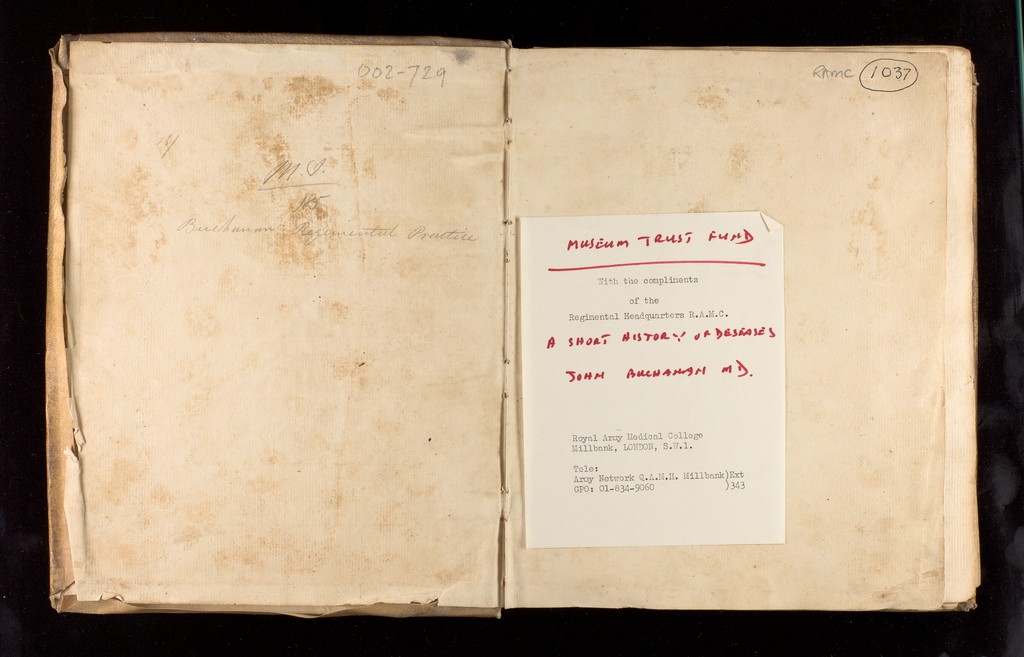 002-729
M.S.
Buchanan Regimental Practice
RAMC 1037
MUSEUM TRUST FUND
With the compliments
of the
Regimental Headquarters R.A.M.C.
A SHORT HISTORY OF DESEASES
JOHN BUCHANAN MD.
Royal Army Medical College
Millbank, LONDON, S.W.1.
Tele:
Army Network Q.A.M.H. Millbank)Ext
GPO: 01-834-9060 )343